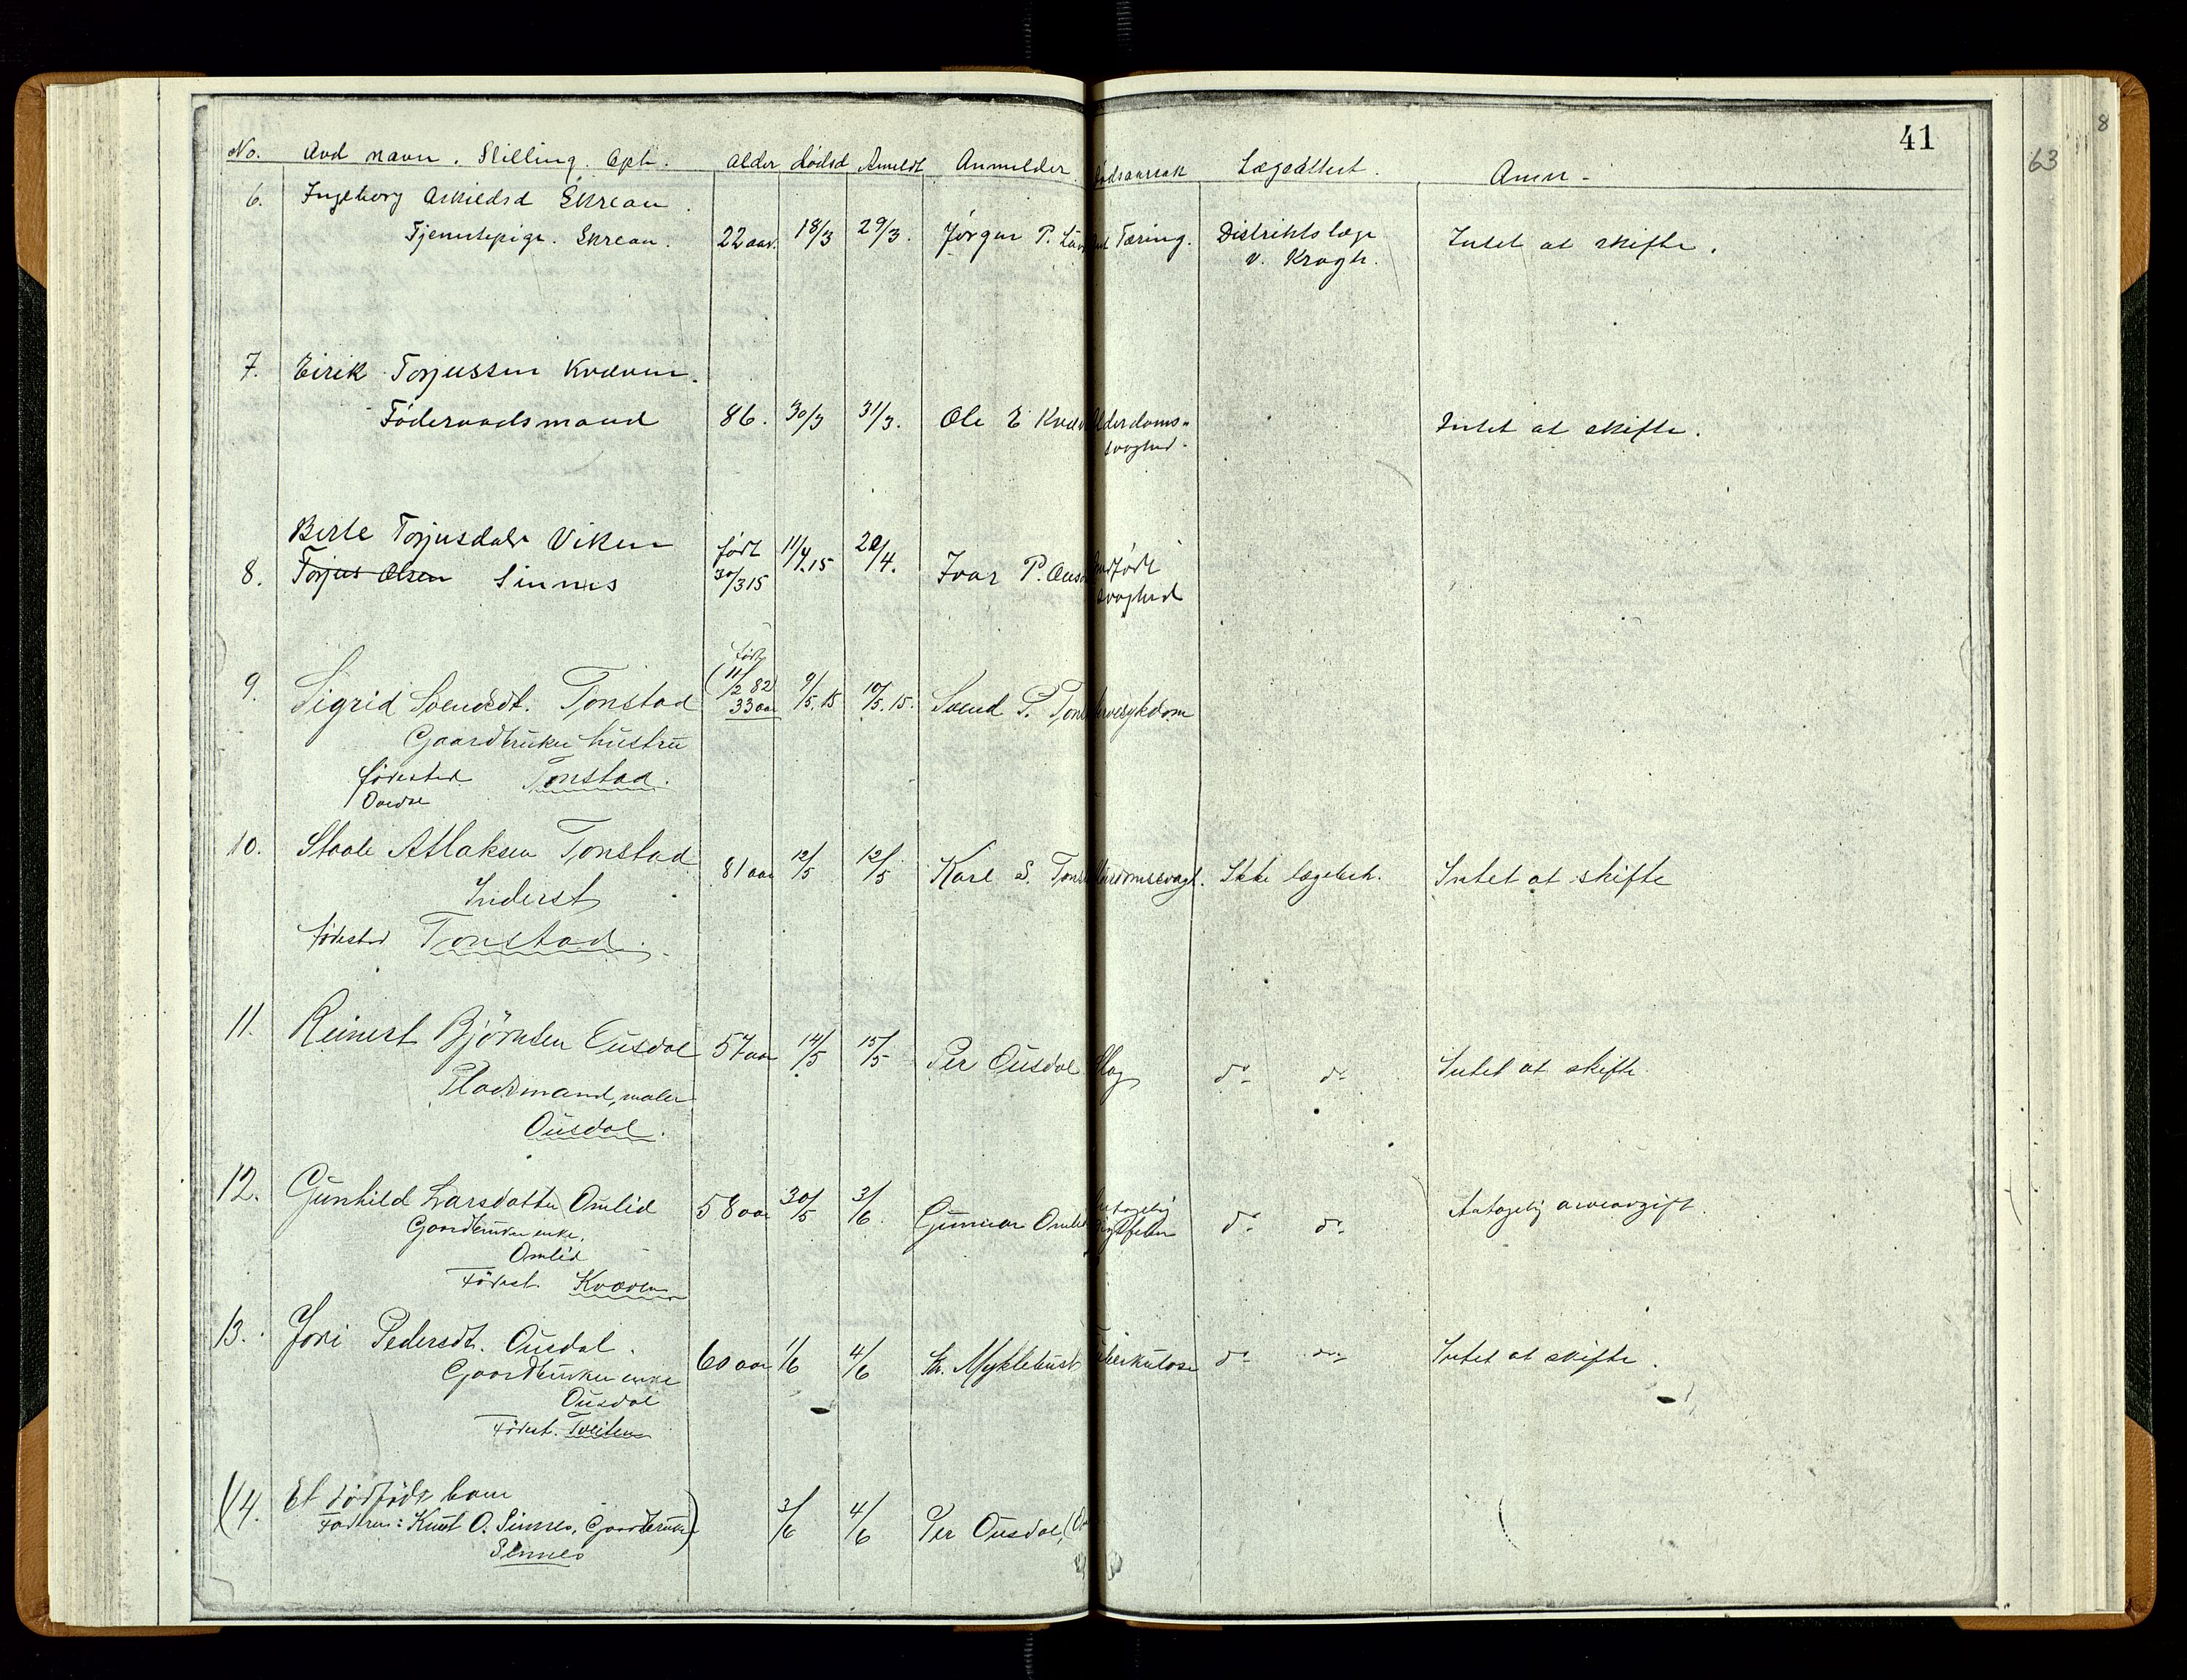 41
63
8
No. Avd navn. Stilling. Oph. alder dødsd Anmeldt Anmelder Lægeattest. Anm-
6. Ingeborg Askieldsd Skreaa.
Tjenestepige. Skreaa. 22 aar. 18/3 29/3. Jørgen P. Tæring. Distriktslæge Intet at skifte.
v. Krogh.
7. Eirik Torjussen Kvæven.
Føderaadsmand 86. 30/3 31/3. Ole E Alderdoms- Intet at skifte.
svaghed.
Berte Torjusdatr Viken født 11/4.15 20/4.
8. Torjus Olsen Sinnes 30/3 15 Ivar P. medfødt
svaghed
født
9. Sigrid Svendsdt. Tonstad (11/2 82) 33 aar 9/5.15 10/5.15. Svend P. Nervesykdom
Gaardbruker hustru
fødested Tonstad.
10. Staale Atlaksen Tonstad 81 aar 12/5 12/5 Karl S. Ikke lægebeh. Intet at skifte
Inderst
fødested Tonstad.
11. Reinert Björnsen Ousdal 57 aar 14/5 15/5 Per Ousdal Slag do do Intet at skifte
Pladsmand, maler
Ousdal.
12. Gunhild Larsdatter Omlid 58 aar 30/5 3/6. Gunnar Omlid Antagelig do do Antagelig arveavgift.
Gaardbruker enke.
Omlid
Födest. Kvæven
13. Joni Pedersdt. Ousdal. 60 aar 1/6 4/6 Myklebust Tuberkulose do do Intet at skifte.
Gaardbruker enke
Ousdal
Födest. Tveiten
(14. Et dödfödt barn 3/6 4/6 Per Ousdal,
Fadren: Knut O. Sinnes, Gaardbruker)
Sinnes